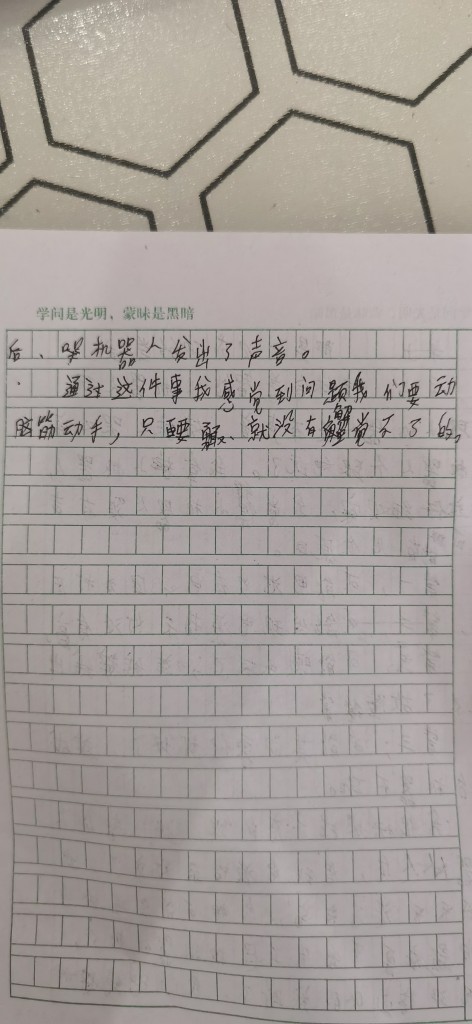 学问是光明，蒙昧是黑暗
后、 机器人发出了声音。
通过这件事我感觉到问题我们要动
脑筋动手，只要 、就没有解觉不了的。